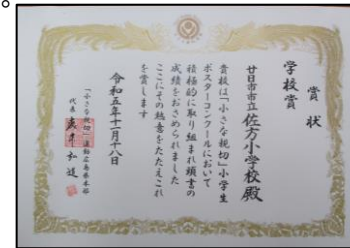 賞状
学校賞
廿日市市立佐方小学校殿
貴校は「小さな親切」小学生
ポスターコンクールにおいて
積極的に取り組まれ頭書の
成績をおさめられました
ここにその熱意をたたえこれ
を賞します
令和五年十一月十八日
「小さな親切」運動広島県本部
代表